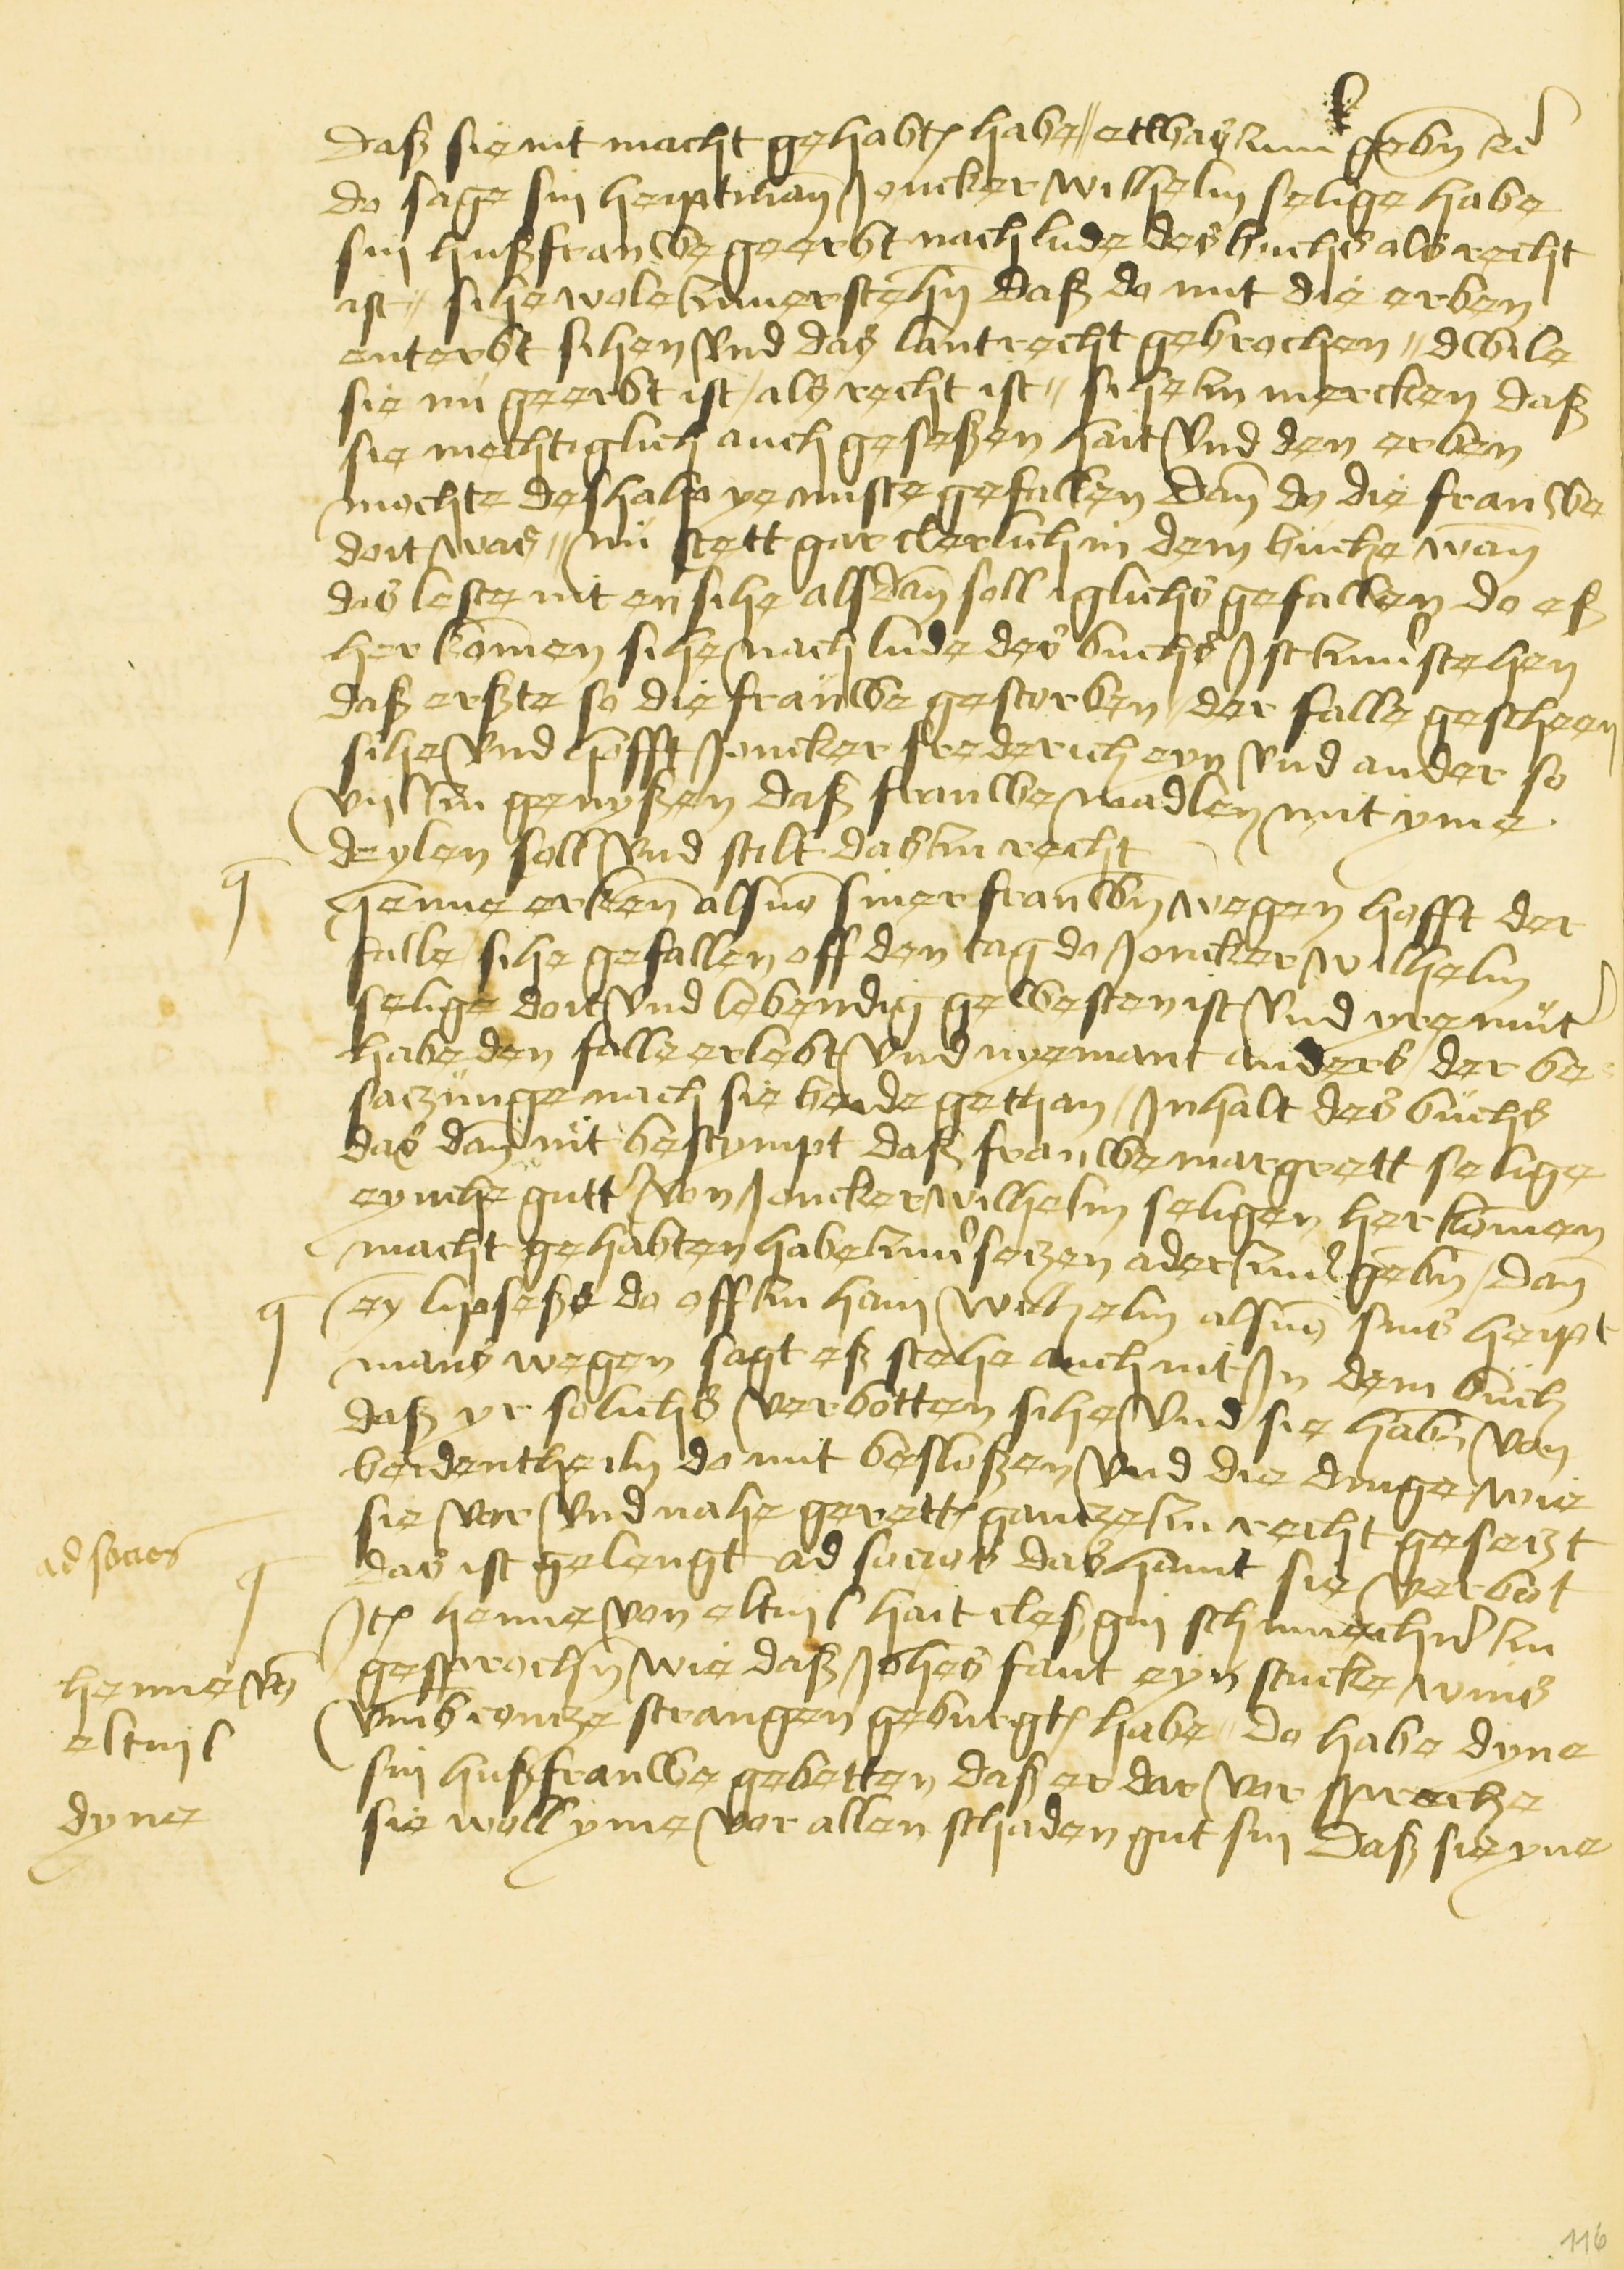 daß sie nit macht gehabt habe // etwas zuu͛ gebn̄ ec͛
do sage sin heiptman̄ Joncker wilhelm selige habe
sin hußfrauwe geerbt nach lude des buchs als recht
ist // sihe wole zuuersteh̄n daß do mit die erben
enterbt sihen vnd das lantrecht gebrochen // dwile
sie nü geerbt ist / als recht ist // sihe zu mercken daß
sie mechtiglich auch geseßen hait vnd den erben
mochte deshalp ye nuste gefallen dan̄ do die frauwe
doit was // nü stett gar clerlich in dem büche wan̄
das leste nit en sihe alsdan̄ soll iglichs gefallen do eß
herkom̄en sihe nach lude des buchs Ist zuu͛stehen
daß erßte so die frauwe gestorben / der falle gescheen
sihe vnd hofft Joncker frederich eyn vnd ander so
vil zu genyßen daß frauwe madlen mit yme
deylen soll vnd stilt das zu recht
Henne erken̄ als vō siner frauwn̄ wegen hofft der
falle sihe gefallen off den tag do Joncker wilhelm
selige doit vnd lebendig gewesten ist vnd yre müt͛
habe den falle erlebt vnd nyemant anders der be
saczünge nach sie beide gethan / Inhalt des büchs
das dan̄ nit bestympt daß frauwe margrett selige
eyniche gutt von Joncker wilhelm seligen herkom̄en
macht gehabten habe zuu͛seczen ader zuu͛gebn̄ / dan̄
ey lipseße do off zu han̄ wilhelm als vō sins heipt
mans wegen sagt eß stehe auch nit In dem büch
daß yr solichs verbotten sihe vnd sie habn̄ von
beidentheiln do mit besloßen vnd die dinge wie
sie vor vnd nahe gerett gancze zu recht geseczt
das ist gelengt ad socios das hainit sie verbot
ad socios
Itē henne von eltuil hait cleßgin schumech͛ zu
gesprochn̄ wie daß Johes faut eyn stucke wins
vmb concze strangen geburgt habe // do habe dyne
sin hußfrauwe gebetten daß er dar vor spreche
sie woll yme vor allen schaden gut sin daß sie yne
henne vō
eltuil
dyne
116